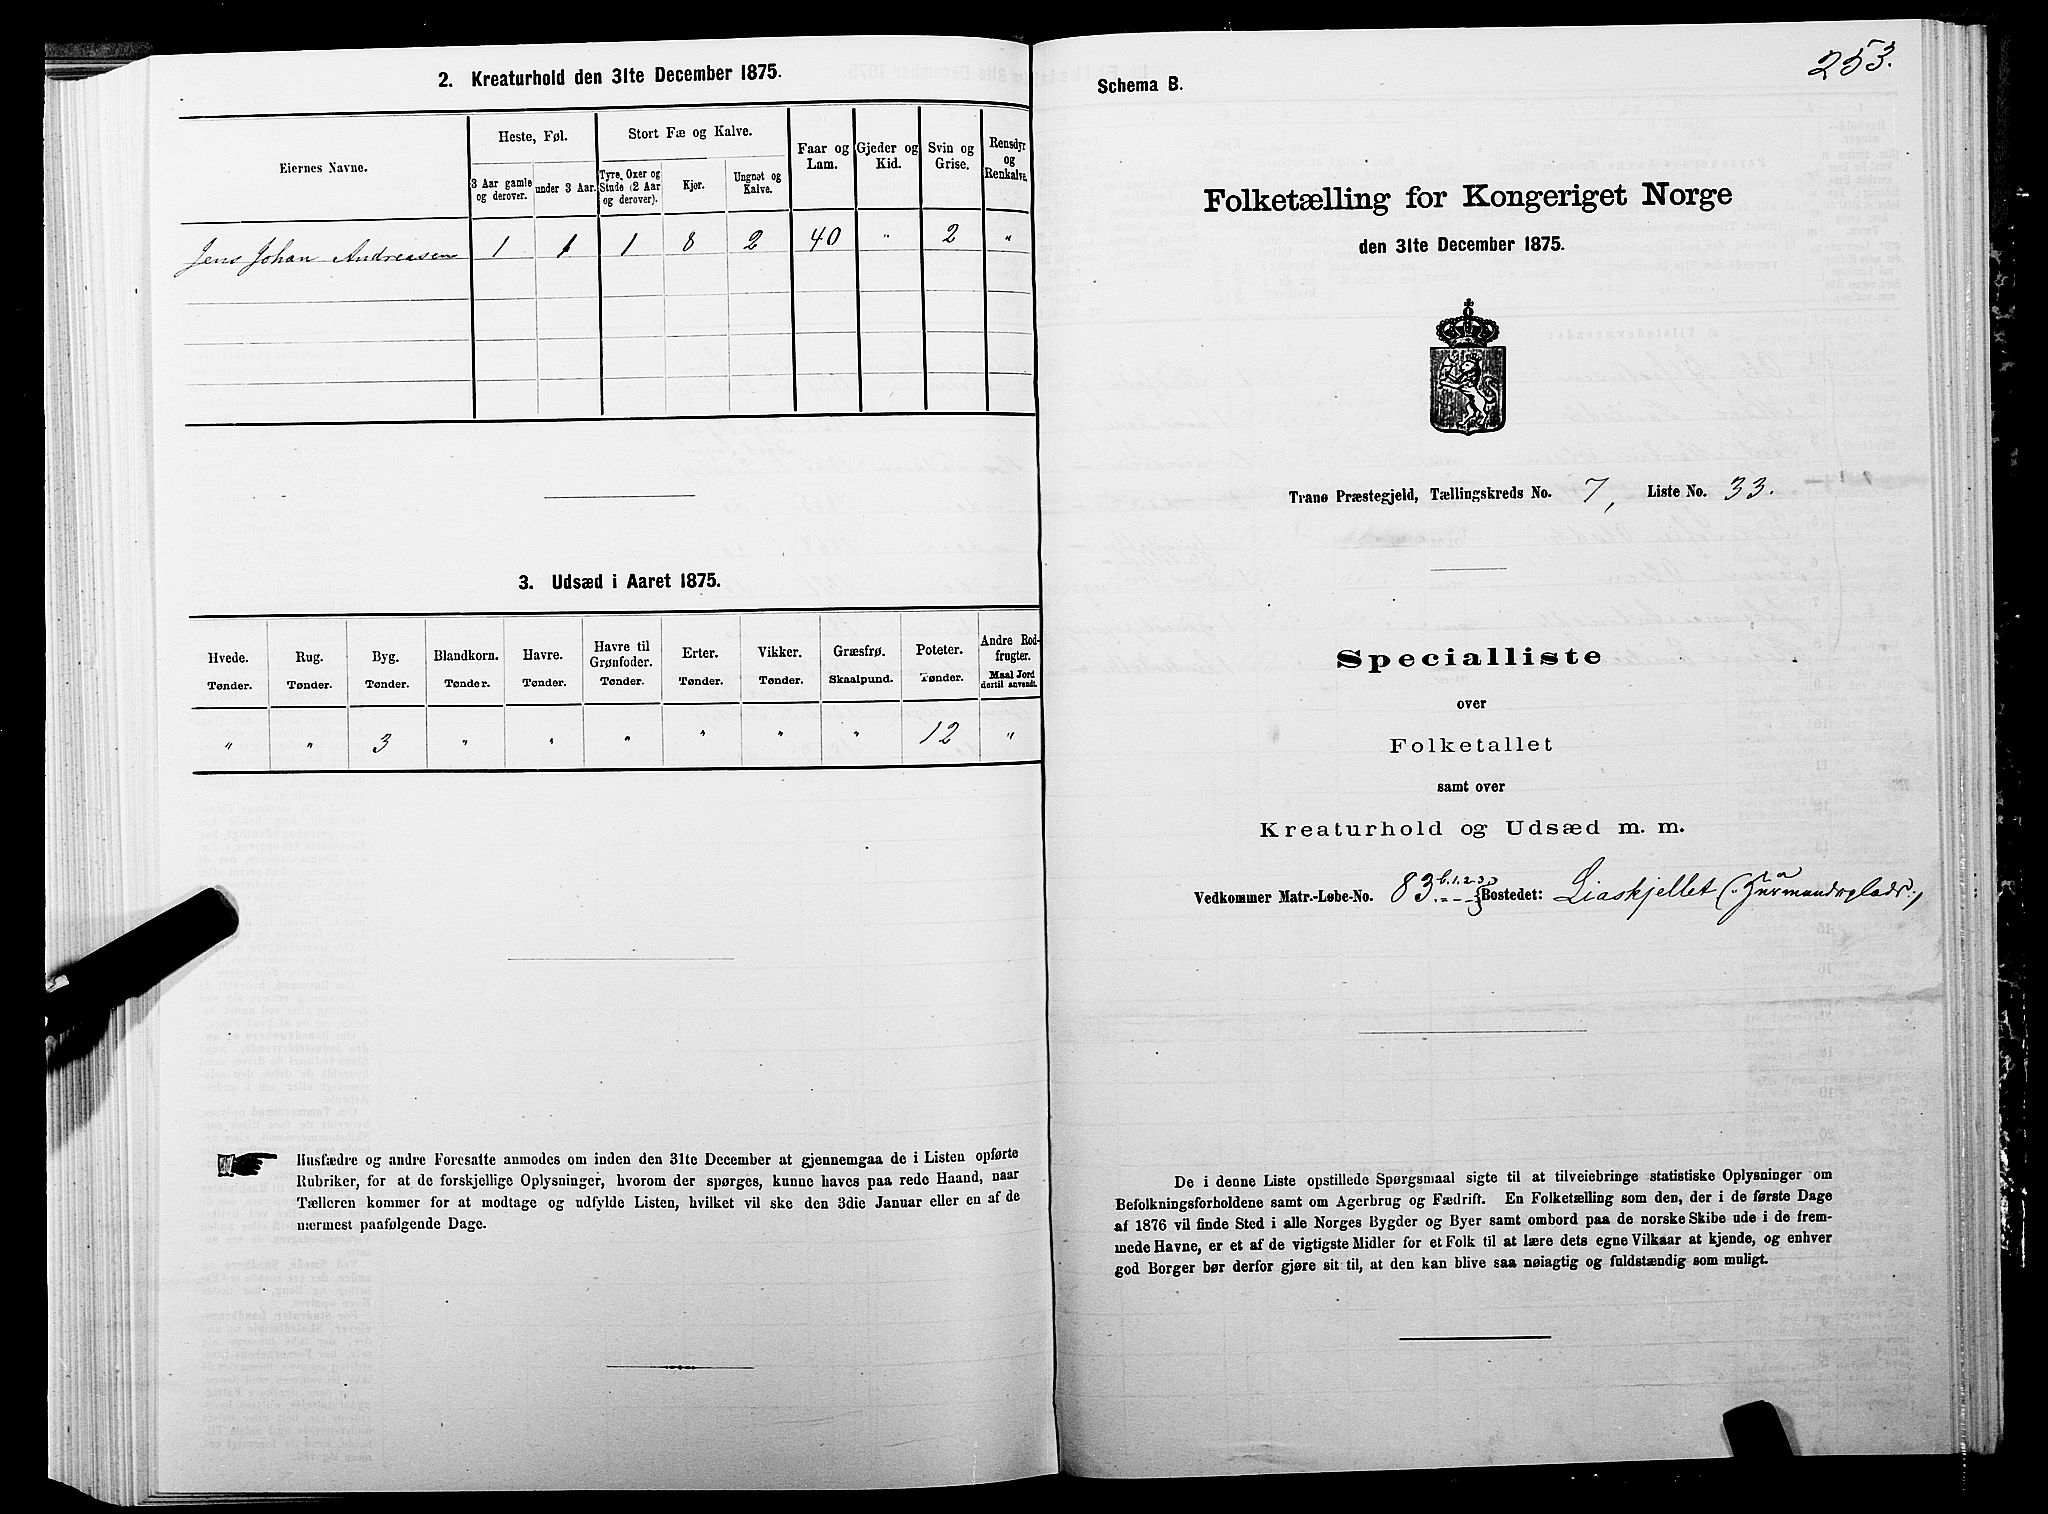 2. Kreaturhold den 31te December 1875.
Eiernes Navne.
Heste, Føl.
Stort Fæ og Kalve.
Faar og Lam.
Gjeder og Kid.
Svin og Grise.
Rensdyr og Renkalve.
3 Aar gamle og derover.
under 3 Aar.
Tyre, Oxer og Stude (2 Aar og derover).
Kjør.
Ungnøt og Kalve.
Jens Johan Andreasen 1 1 1 8 2 40 " 2 "
3. Udsæd i Aaret 1875.
Hvede. Rug. Byg. Blandkorn. Havre. Havre til Grønfoder. Erter. Vikker. Græsfrø. Poteter. Andre Rodfrugter.
Tønder. Tønder. Tønder. Tønder. Tønder. Tønder. Tønder. Tønder. Skaalpund. Tønder. Maal Jord dertil anvendt.
" " 3 " " " " " " 12 "
Husfædre og andre Foresatte anmodes om inden den 31te December at gjennemgaa de i Listen opførte
Rubriker, for at de forskjellige Oplysninger, hvorom der spørges, kunne haves paa rede Haand, naar
Tælleren kommer for at modtage og udfylde Listen, hvilket vil ske den 3die Januar eller en af de
nærmest paafølgende Dage.
253.
Schema B.
Folketælling for Kongeriget Norge
den 31te December 1875.
Tranø Præstegjeld, Tællingskreds No. 7, Liste No. 33.
Specialliste
over
Folketallet
samt over
Kreaturhold og Udsæd m. m.
Vedkommer Matr.-Løbe-No. 83 b.1.2.3. Bostedet: Liaskjellet
De i denne Liste opstillede Spørgsmaal sigte til at tilveiebringe statistiske Oplysninger om
Befolkningsforholdene samt om Agerbrug og Fædrift. En Folketælling som den, der i de første Dage
af 1876 vil finde Sted i alle Norges Bygder og Byer samt ombord paa de norske Skibe ude i de frem-
mede Havne, er et af de vigtigste Midler for et Folk til at lære dets egne Vilkaar at kjende, og enhver
god Borger bør derfor gjøre sit til, at den kan blive saa nøiagtig og fuldstændig som muligt.